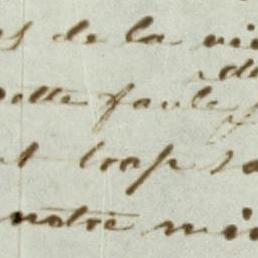 s de la vi
de
cette faute
t trop sa
notre mi